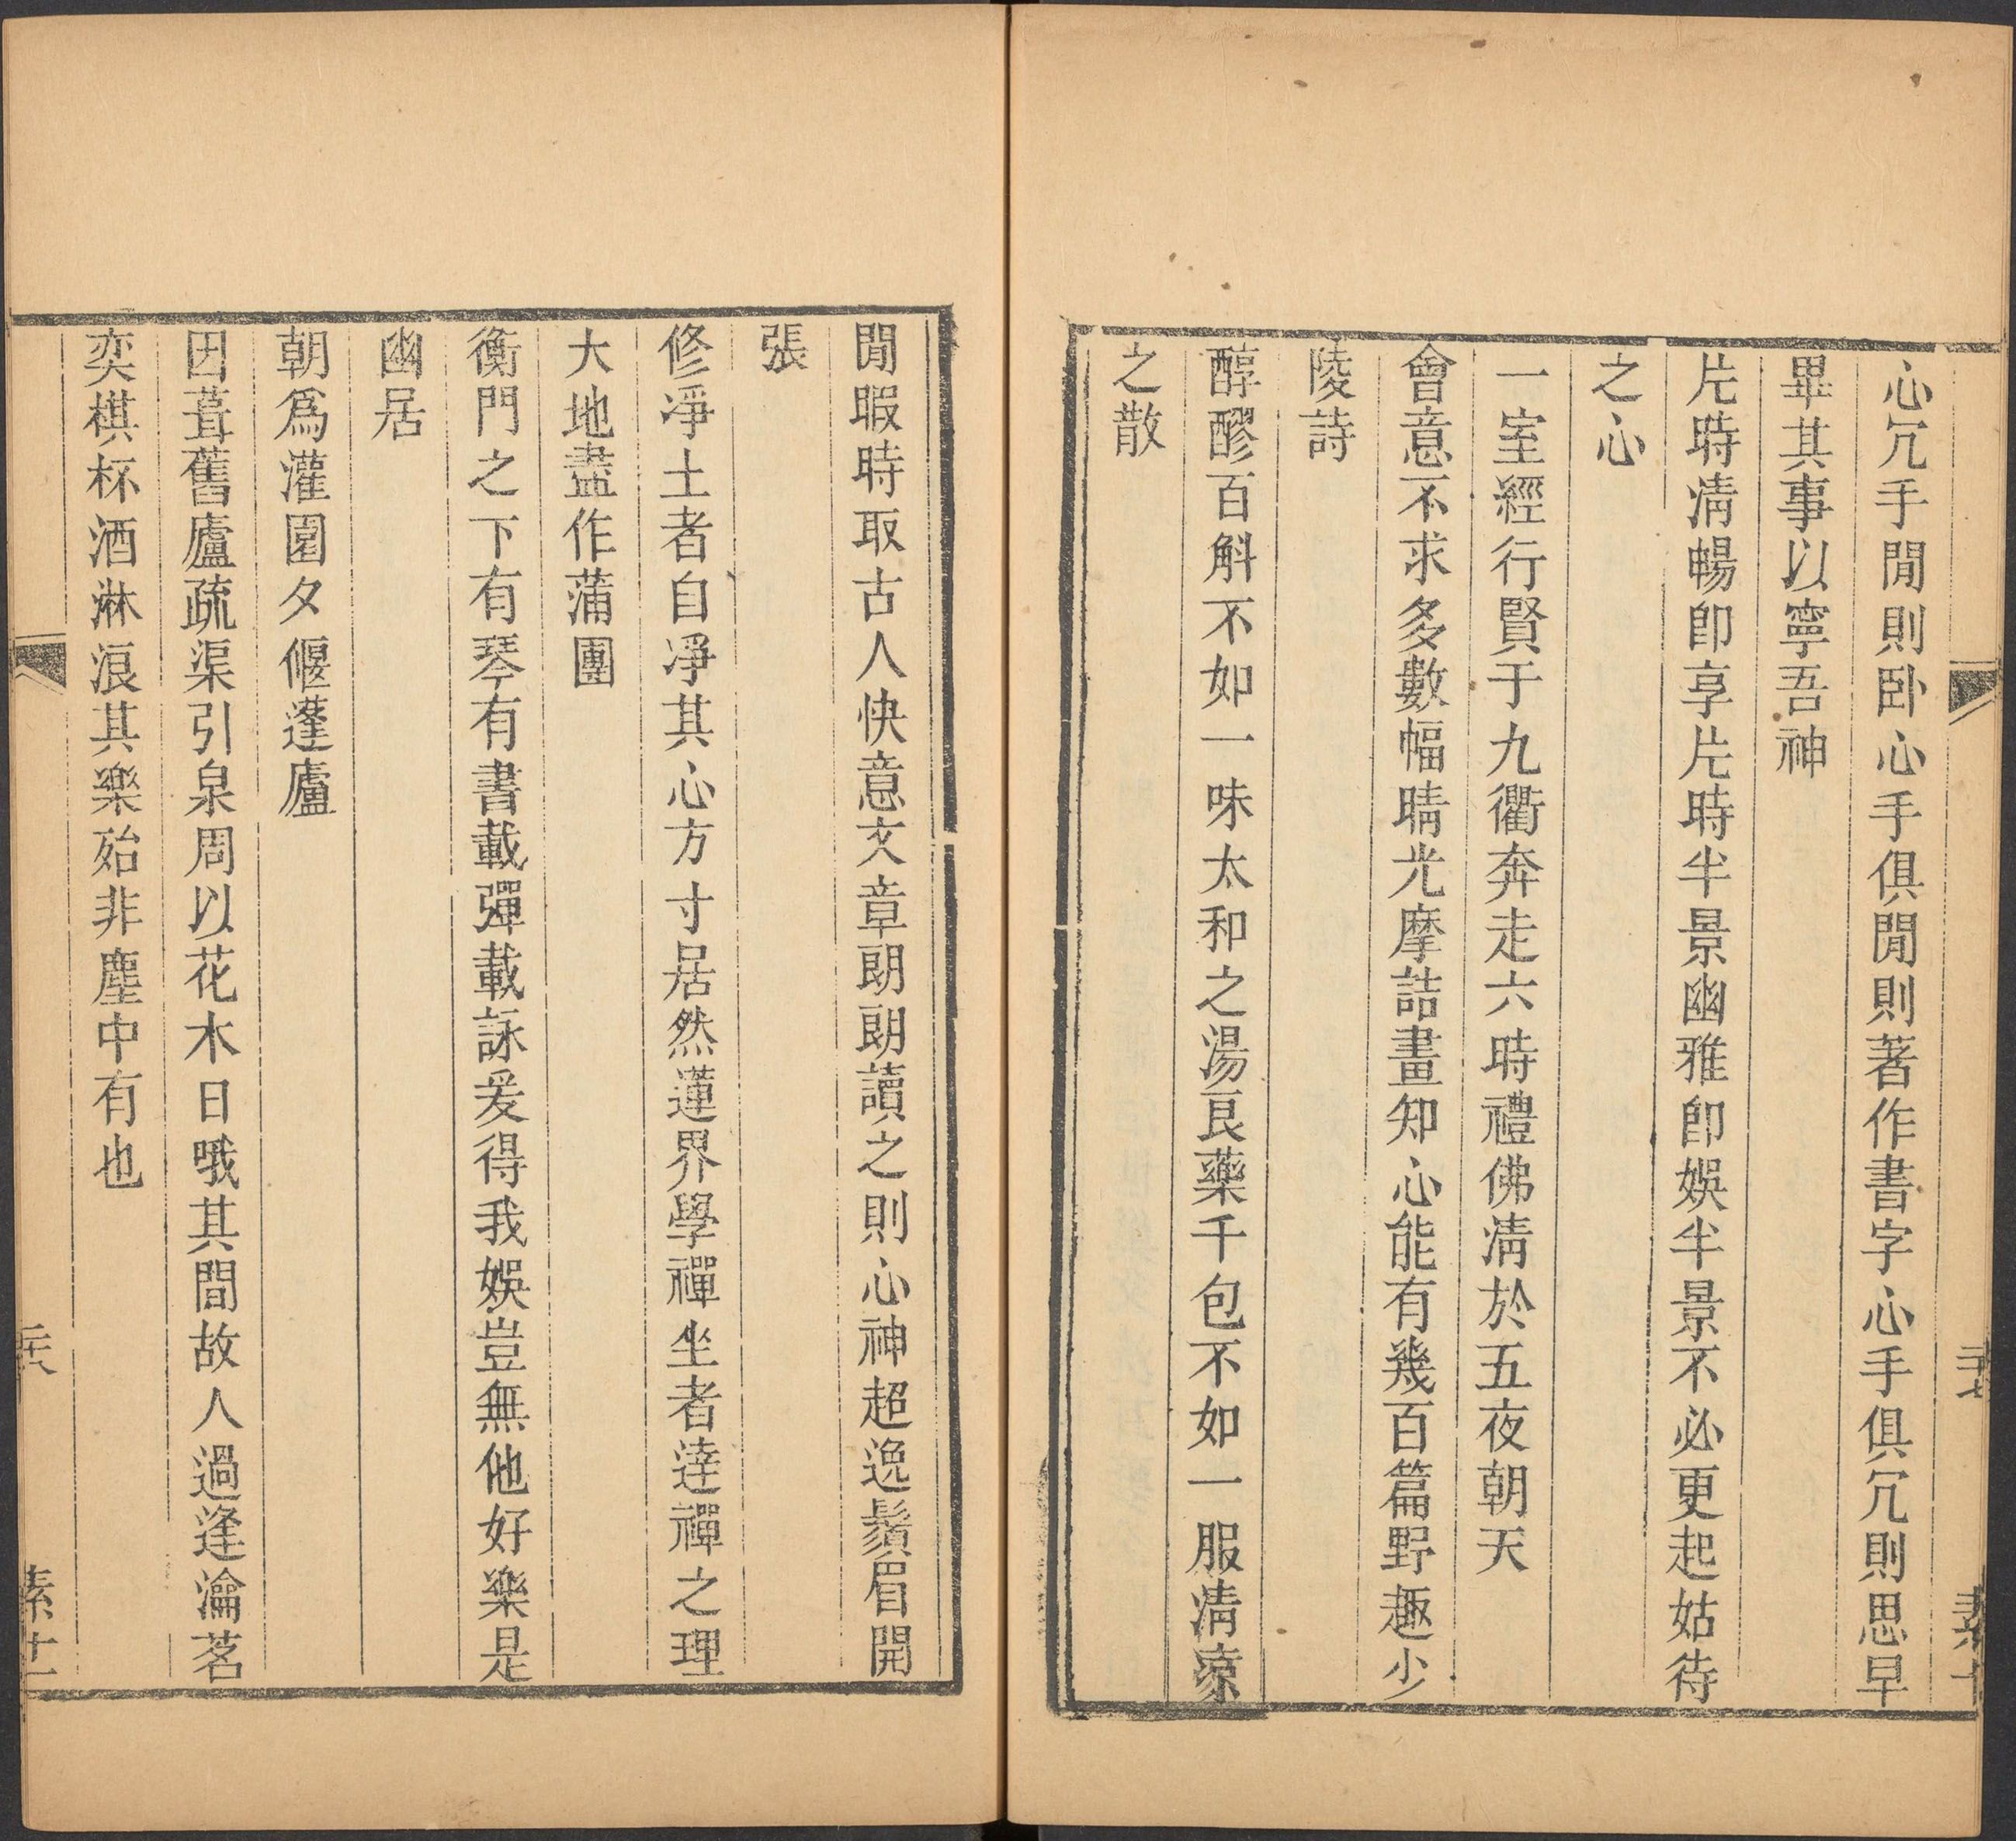 心冗手閒則卧心手俱閒則著作書字心手俱冗則思早
畢其事以寧吾神
片時清暢卽享片時半景幽雅卽娛半景不必更起姑待
之心
一室經行賢于九衢奔走六時禮佛清於五夜朝天
會意不求多數幅晴光摩詰畫知心能有幾百篇野趣少
陵詩
醇醪百斛不如一味太和之湯良藥千包不如一服清涼
之散
閒暇時取古人快意文章朗朗讀之則心神超逸鬚眉開
張
修淨土者自淨其心方寸居然蓮界學禪坐者達禪之理
大地盡作蒲團
衡門之下有琴有書載彈載詠爰得我娛豈無他好樂是
幽居
朝爲灌園夕偃蓬廬
因葺舊廬疏渠引泉周以花木日哦其間故人過逢瀹茗
奕棋杯酒淋浪其樂殆非塵中有也